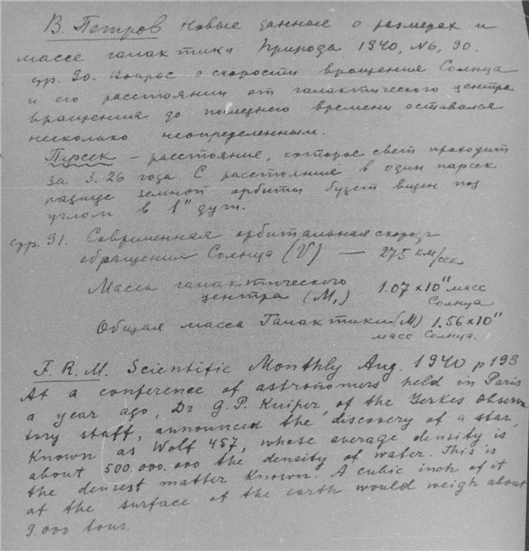 В. Петров Новые данные о размерах и
массе галактики Природа 1940, N6, 90.
стр. 90. Вопрос о скорости вращения Солнца
и его расстоянии от галактического центра
вращения до последнего времени оставался
несколько неопределенным.
Парсек – расстояние, которое свет проходит
за 3.26 года. С расстояния в один парсек
радиус земной орбиты будет виден под
углом в 1" дуги.
стр. 91. Современная орбитальная скорость
обращения Солнца (V) — 275 км/сек
Масса галактического
центра (M₁) 1.07×10¹¹ масс
Солнца
Общая масса Галактики (M) 1.56×10¹¹
масс Солнца.
F. R. M. Scientific Monthly Aug. 1940 p 193
At a conference of astronomers held in Paris
a year ago, Dr G. P. Kuiper, of the Yerkes Observa
tory staff, announced the discovery of a star,
known as Wolf 457, whose average density is
about 500.000.000 the density of water. This is
the densest matter known. A cubic inch of it
at the surface of the earth would weigh about
9.000 tons.